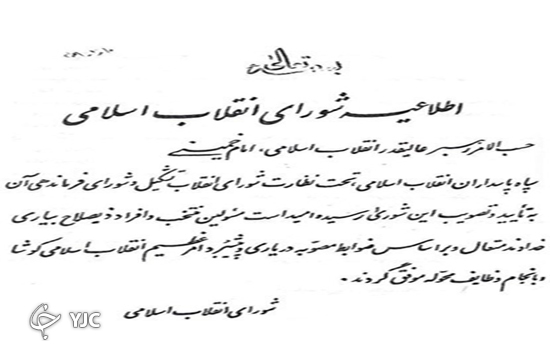 بسمه تعالی
اطلاعیه شورای انقلاب اسلامی
حسب الامر رهبر عالیقدر انقلاب اسلامی، امام خمینی
سپاه پاسداران انقلاب اسلامی، تحت نظارت شورای انقلاب تشکیل و شورای فرماندهی آن
به تأیید و تصویب این شوری رسیده امید است مسئولین منتخب و افراد ذیصلاح بیاری
خداوند متعال و براساس ضوابط مصوبه در یاری و پیشبرد امر عظیم انقلاب اسلامی کوشا
و بانجام وظایف محوله موفق گردند.
شورای انقلاب اسلامی
YJC